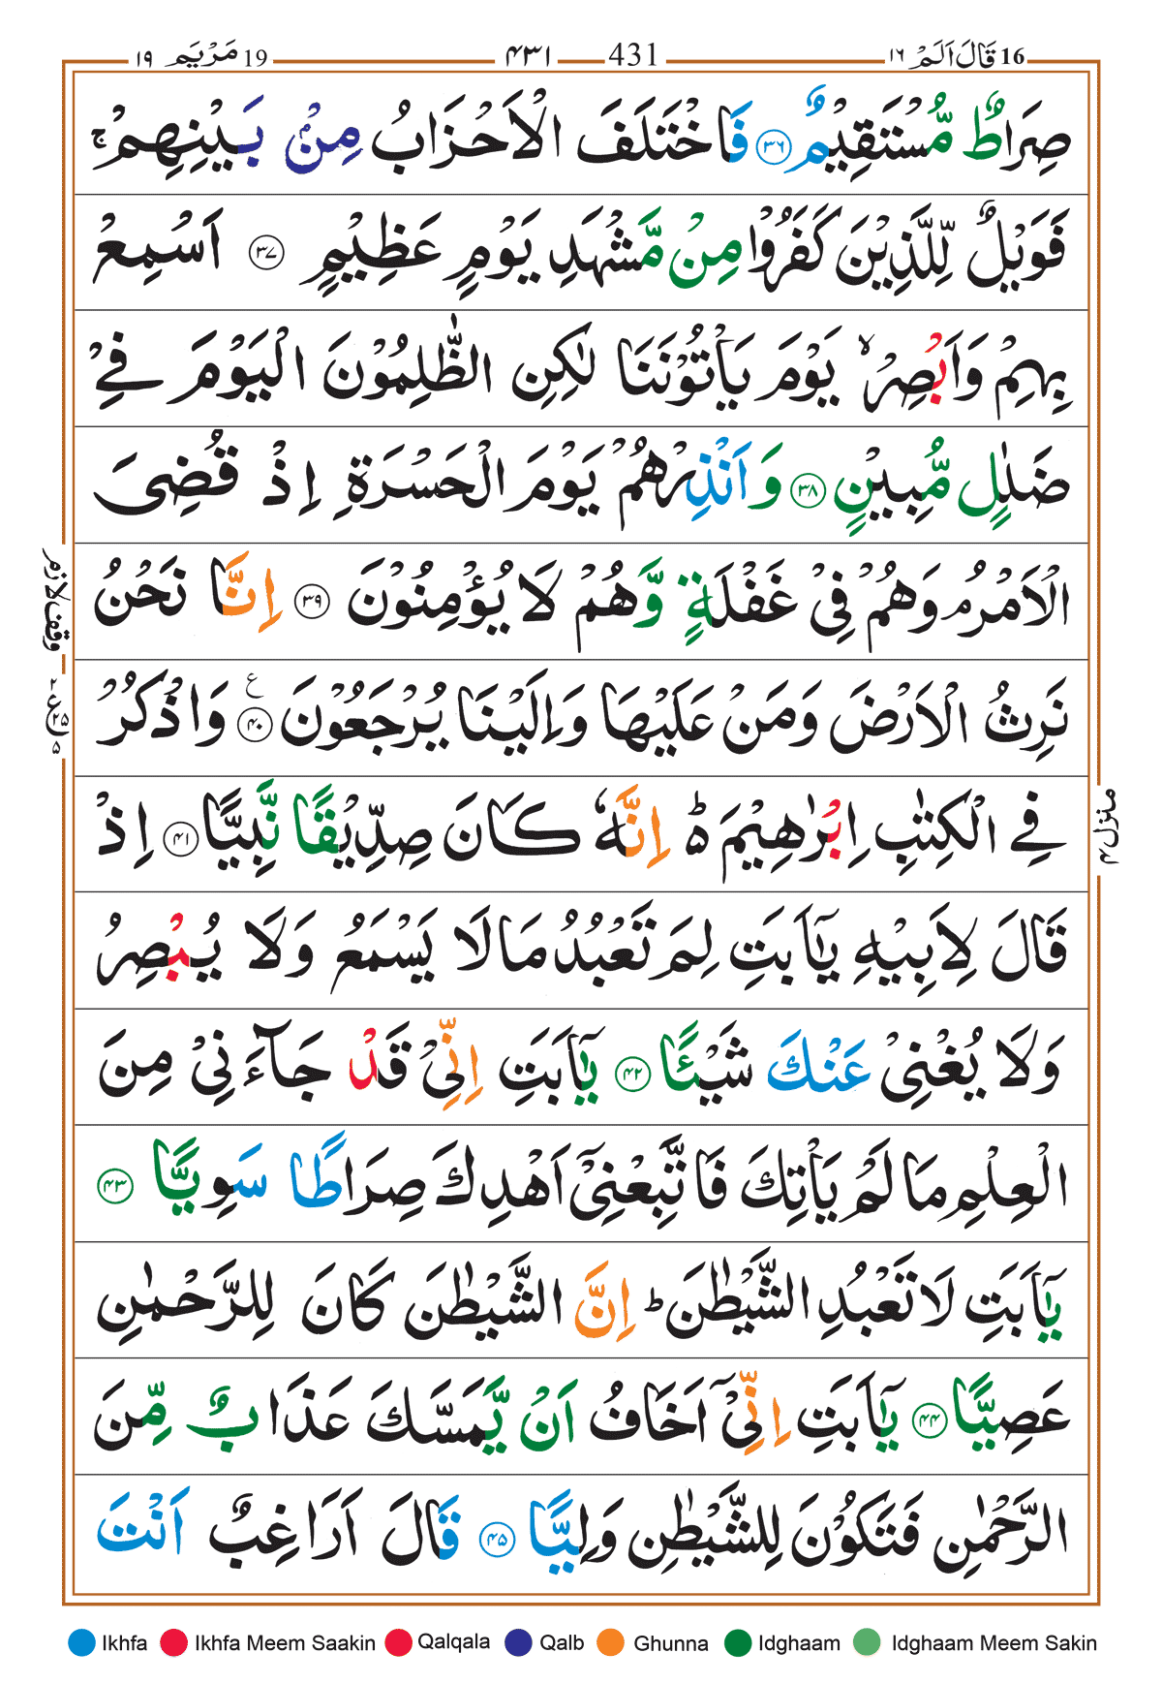 16 قَالَ اَلَمْ ١٦ 431 ۴۳۱ 19 مَرْيَم ١٩
صِرَاطٌ مُّسْتَقِيْمٌ ۳۶ فَاخْتَلَفَ الْاَحْزَابُ مِنْۢ بَيْنِهِمْ ۚ
فَوَيْلٌ لِّلَّذِيْنَ كَفَرُوْا مِنْ مَّشْهَدِ يَوْمٍ عَظِيْمٍ ۳۷ اَسْمِعْ
بِهِمْ وَاَبْصِرْ ۙ يَوْمَ يَاْتُوْنَنَا لٰكِنِ الظّٰلِمُوْنَ الْيَوْمَ فِيْ
ضَلٰلٍ مُّبِيْنٍ ۳۸ وَاَنْذِرْهُمْ يَوْمَ الْحَسْرَةِ اِذْ قُضِيَ
الْاَمْرُ ۘ وَهُمْ فِيْ غَفْلَةٍ وَّهُمْ لَا يُؤْمِنُوْنَ ۳۹ اِنَّا نَحْنُ
وقف لازم
نَرِثُ الْاَرْضَ وَمَنْ عَلَيْهَا وَاِلَيْنَا يُرْجَعُوْنَ ۴۰ ع وَاذْكُرْ
فِي الْكِتٰبِ اِبْرٰهِيْمَ ؕ اِنَّهٗ كَانَ صِدِّيْقًا نَّبِيًّا ۴۱ اِذْ
منزل ۴
قَالَ لِاَبِيْهِ يٰۤاَبَتِ لِمَ تَعْبُدُ مَا لَا يَسْمَعُ وَلَا يُبْصِرُ
وَلَا يُغْنِيْ عَنْكَ شَيْـًٔا ۴۲ يٰۤاَبَتِ اِنِّيْ قَدْ جَآءَنِيْ مِنَ
الْعِلْمِ مَا لَمْ يَاْتِكَ فَاتَّبِعْنِيْۤ اَهْدِكَ صِرَاطًا سَوِيًّا ۴۳
يٰۤاَبَتِ لَا تَعْبُدِ الشَّيْطٰنَ ؕ اِنَّ الشَّيْطٰنَ كَانَ لِلرَّحْمٰنِ
عَصِيًّا ۴۴ يٰۤاَبَتِ اِنِّيْۤ اَخَافُ اَنْ يَّمَسَّكَ عَذَابٌ مِّنَ
الرَّحْمٰنِ فَتَكُوْنَ لِلشَّيْطٰنِ وَلِيًّا ۴۵ قَالَ اَرَاغِبٌ اَنْتَ
Ikhfa Ikhfa Meem Saakin Qalqala Qalb Ghunna Idghaam Idghaam Meem Sakin